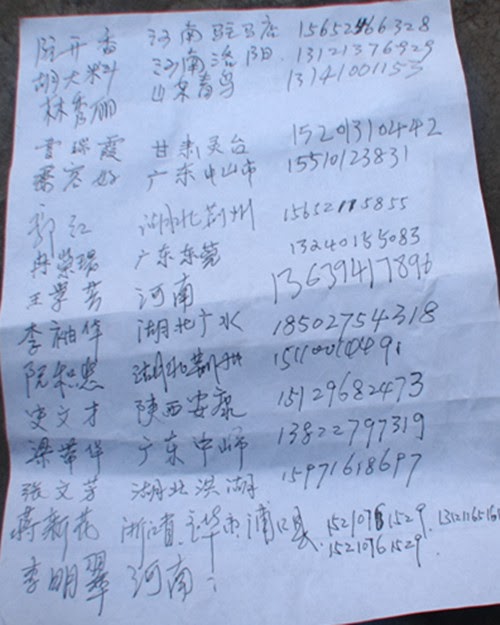 阮开香 河南驻马店 15652466328
胡大料 河南洛阳 13121376929
林秀丽 山东青岛 13141001153
曹瑞霞 甘肃灵台 15201310442
梁容好 广东中山市 15510123831
郭红 湖北荆州 15652115855
冉崇瑞 广东东莞 13240155083
王学芳 河南 13639417896
李袖华 湖北广水 18502754318
阮和忠 湖北荆州
史文才 陕西安康 15129682473
梁带华 广东中山市 13822797319
张文芳 湖北洪湖 15971618697
蒋新花 浙江省金华市浦江县 15210761529
15210761529
李明翠 河南